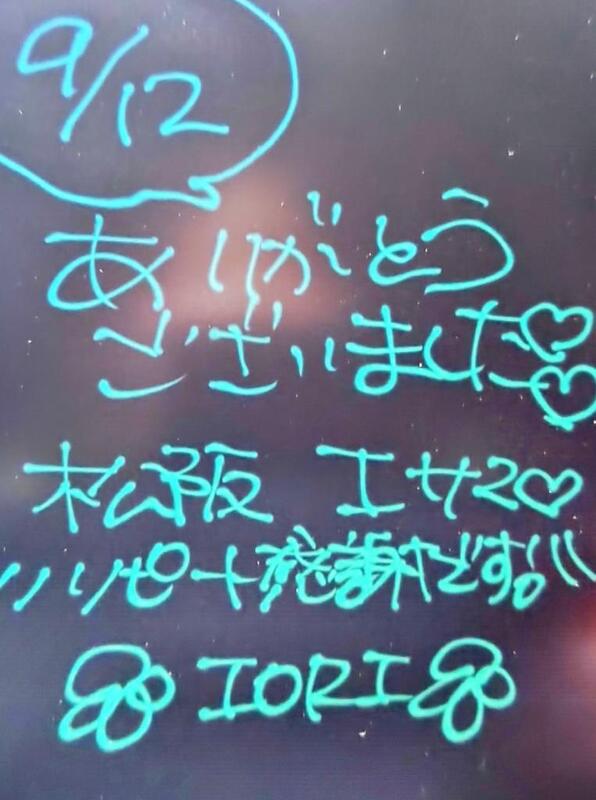 9/12
ありがとう
ございました♡♡
松阪 エサ2♡
リピート感謝です。
IORI